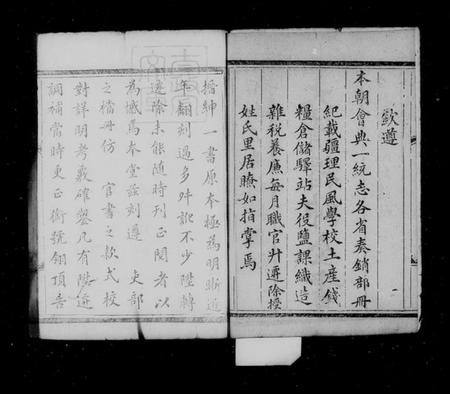 欽遵
本朝會典一統志各省奏銷部冊
紀載疆理民風學校土産錢
糧倉儲驛站夫役鹽課織造
雜税養廉每月職官升遷除授
姓氏里居瞭如指掌焉
一
搢紳一書原本極為明晰近
年翻刻過多舛訛不少陞轉
遷除未能隨時刊正閱者以
為憾爲本堂茲刻遵 吏部
之檔冊仿 官書之款式校
對詳明考覈確鑿凡有陞遷
調補當時更正銜號翎頂吿